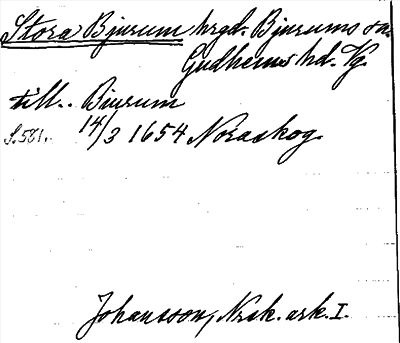 Stora Bjurum hrgd. Bjurums sn.
Gudhems hd. Vg.
till. Biurum
S.581. 14/3 1654 Noraskog.
Johansson, Nrsk. ark. I.